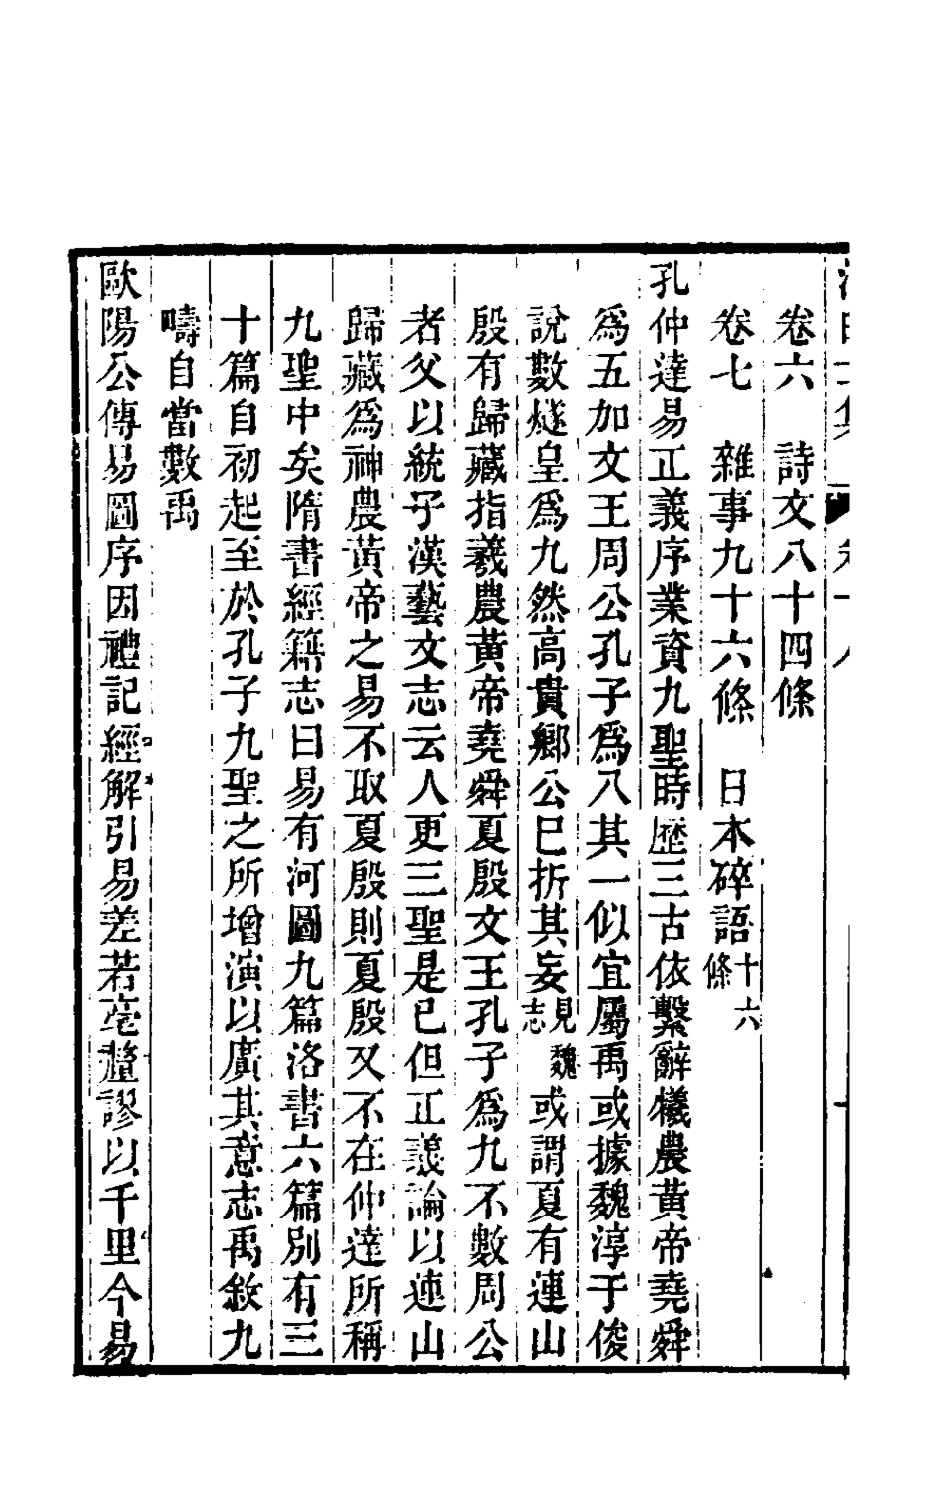 卷六　詩文八十四條
卷七　雜事九十六條　日本碎語十六條
孔仲達易正義序業資九聖時歷三古依繫辭犧農黃帝堯舜
爲五加文王周公孔子爲八其一似宜屬禹或據魏淳于俊
說數燧皇爲九然高貴鄉公已折其妄見魏志或謂夏有連山
殷有歸藏指羲農黃帝堯舜夏殷文王孔子爲九不數周公
者父以統子漢藝文志云人更三聖是已但正義論以連山
歸藏爲神農黃帝之易不取夏殷則夏殷又不在仲達所稱
九聖中矣隋書經籍志曰易有河圖九篇洛書六篇別有三
十篇自初起至於孔子九聖之所增演以廣其意志禹敘九
疇自當數禹
歐陽公傳易圖序因禮記經解引易差若毫釐謬以千里今易